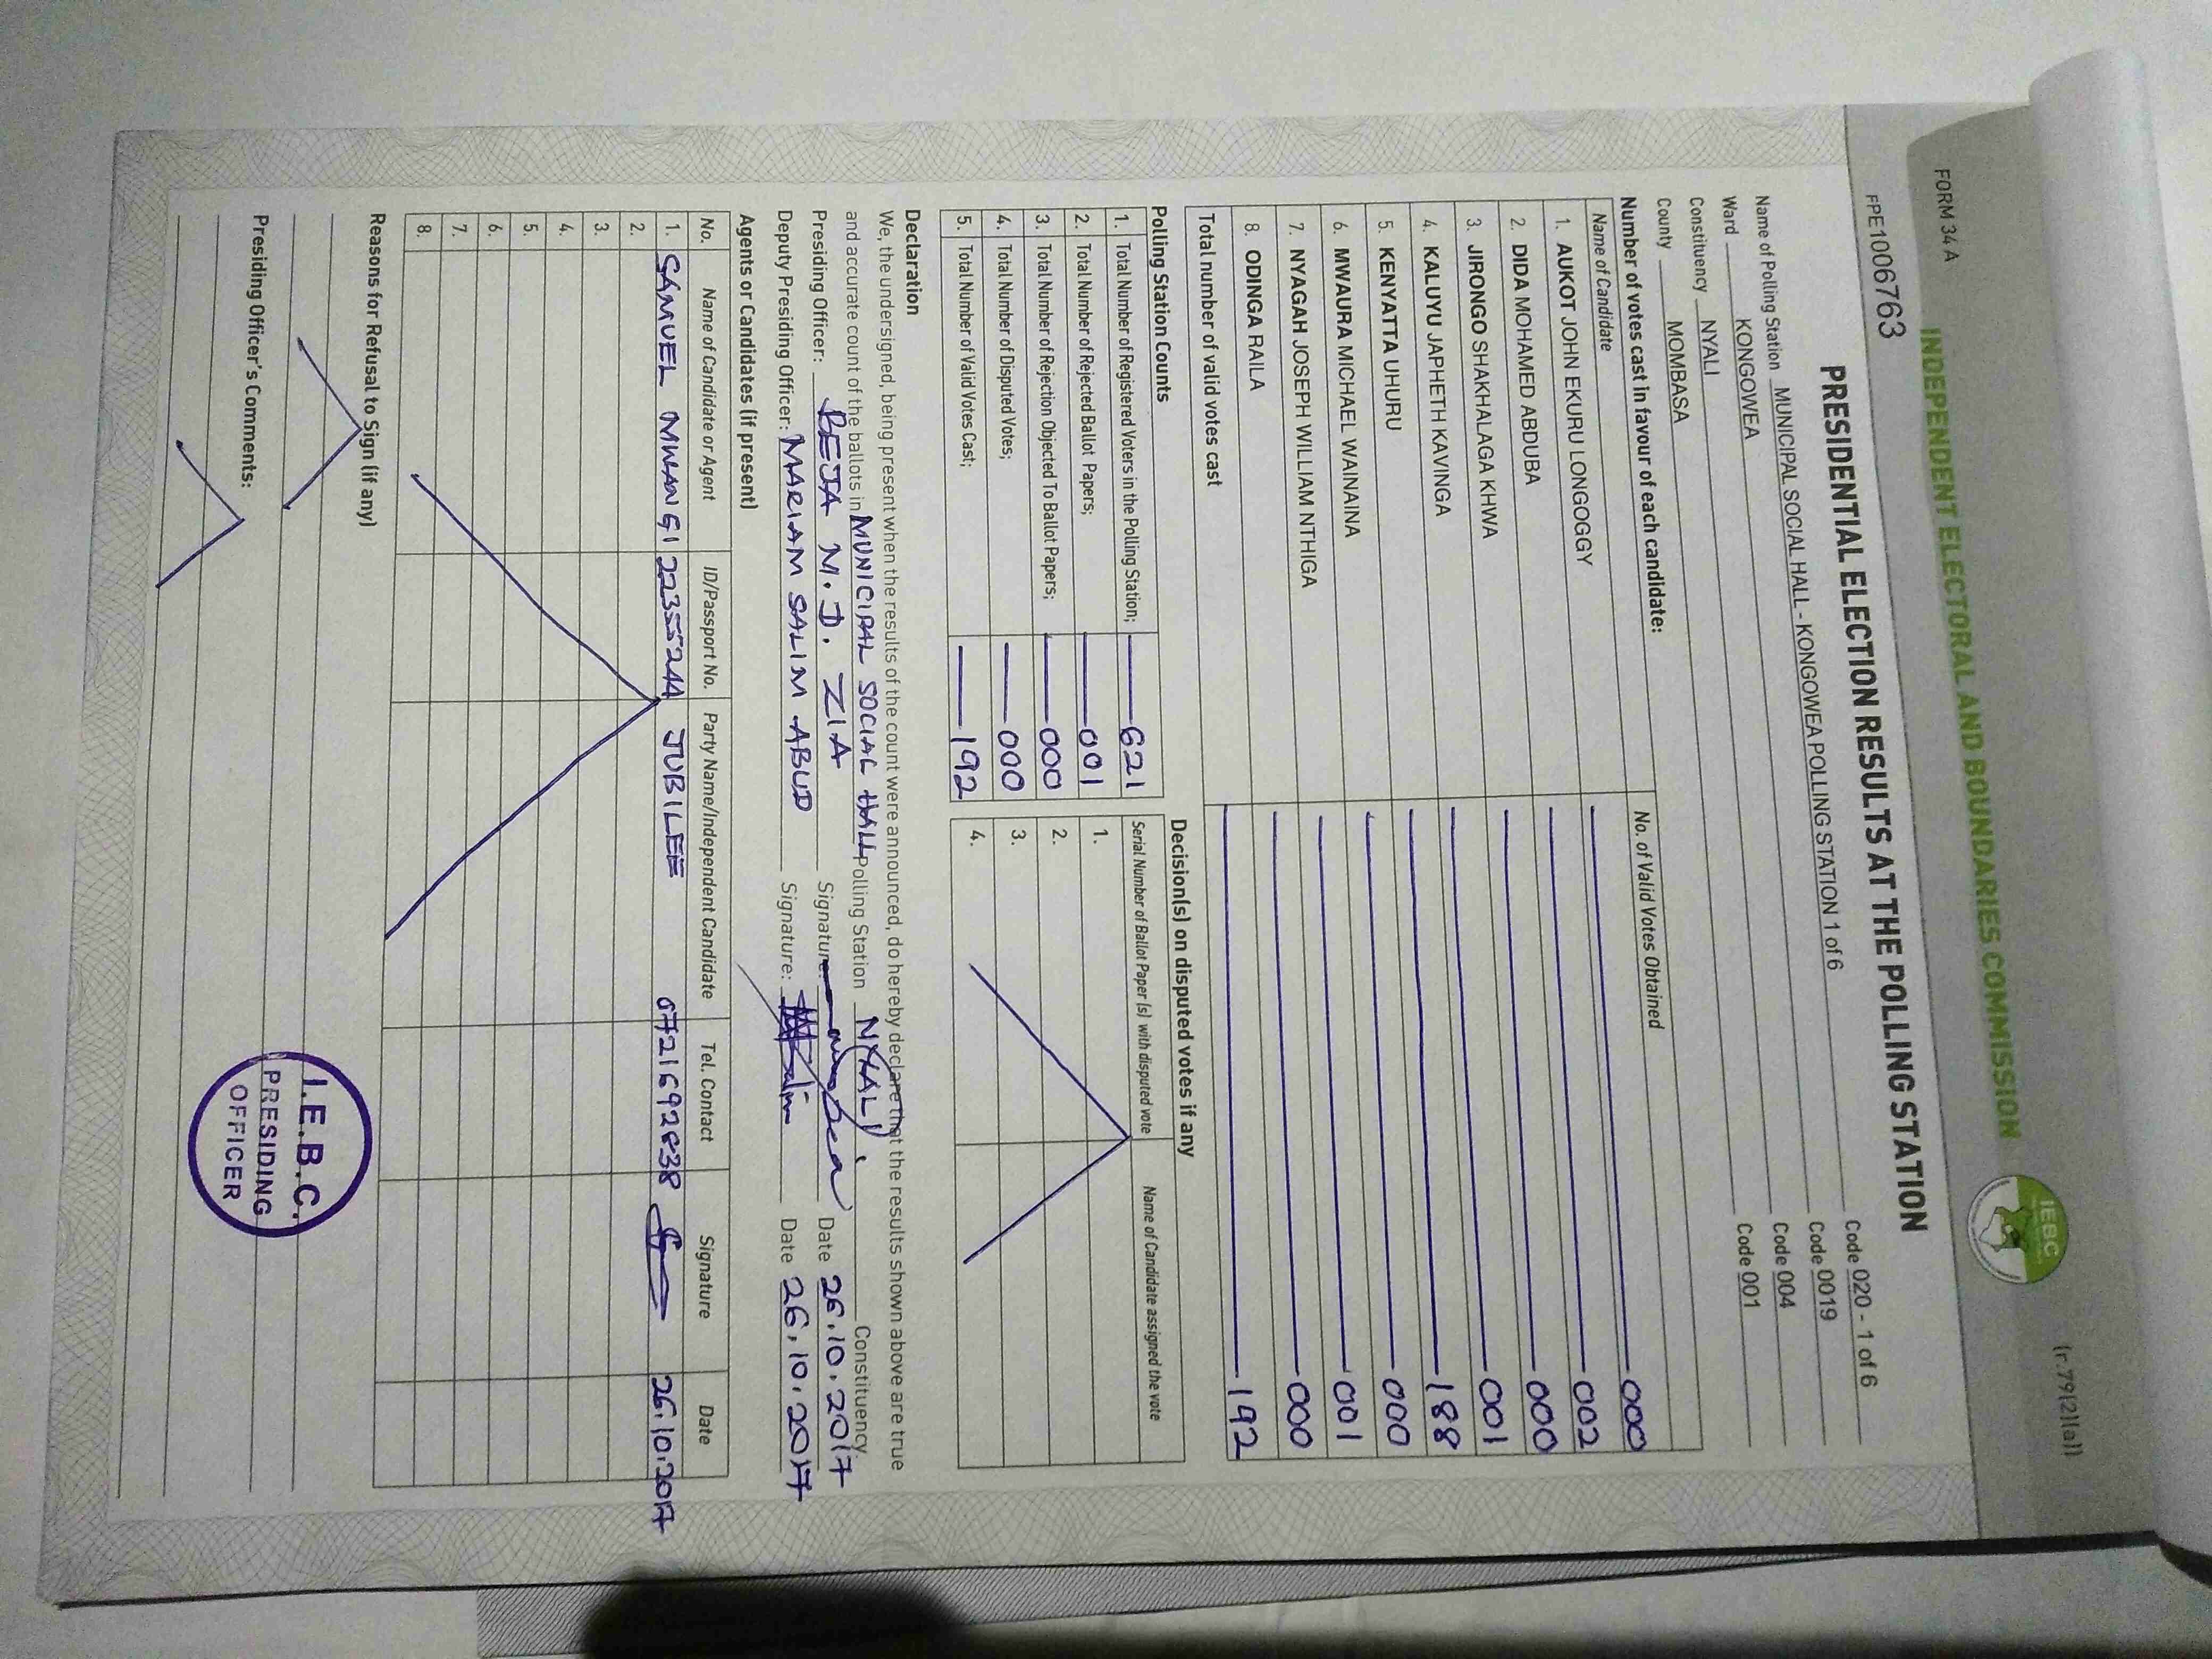 FORM 34A
(r.79(2)(a))
INDEPENDENT ELECTORAL AND BOUNDARIES COMMISSION
IEBC
FPE1006763
PRESIDENTIAL ELECTION RESULTS AT THE POLLING STATION
Name of Polling Station MUNICIPAL SOCIAL HALL - KONGOWEA POLLING STATION 1 of 6 Code 020 - 1 of 6
Ward KONGOWEA Code 0019
Constituency NYALI Code 004
County MOMBASA Code 001
Number of votes cast in favour of each candidate:
Name of Candidate No. of Valid Votes Obtained
1. AUKOT JOHN EKURU LONGOGGY 000
2. DIDA MOHAMED ABDUBA 002
3. JIRONGO SHAKHALAGA KHWA 000
4. KALUYU JAPHETH KAVINGA 001
5. KENYATTA UHURU 188
6. MWAURA MICHAEL WAINAINA 000
7. NYAGAH JOSEPH WILLIAM NTHIGA 001
8. ODINGA RAILA 000
Total number of valid votes cast 192
Polling Station Counts
1. Total Number of Registered Voters in the Polling Station; 621
2. Total Number of Rejected Ballot Papers; 001
3. Total Number of Rejection Objected To Ballot Papers; 000
4. Total Number of Disputed Votes; 000
5. Total Number of Valid Votes Cast; 192
Decision(s) on disputed votes if any
Serial Number of Ballot Paper (s) with disputed vote Name of Candidate assigned the vote
1.
2.
3.
4.
Declaration
We, the undersigned, being present when the results of the count were announced, do hereby declare that the results shown above are true
and accurate count of the ballots in MUNICIPAL SOCIAL HALL Polling Station NYALI Constituency.
Presiding Officer: BEJA M.D. ZIA Signature: Date 26.10.2017
Deputy Presiding Officer: MARIAM SALIM ABUD Signature: Date 26.10.2017
Agents or Candidates (if present)
No. Name of Candidate or Agent ID/Passport No. Party Name/Independent Candidate Tel. Contact Signature Date
1. SAMUEL MWANGI 22355244 JUBILEE 0721692838 26.10.2017
2.
3.
4.
5.
6.
7.
8.
Reasons for Refusal to Sign (if any)
Presiding Officer's Comments:
I.E.B.C.
PRESIDING
OFFICER